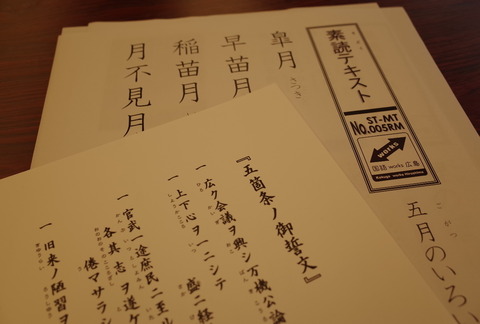 素読テキスト
ST-MT
No.005RM
works
国語 works 広島
Kokugo works Hiroshima
ごがつ
五月のいろい
皐月
さつき
早苗月
稲苗月
月不見月
『五箇条ノ御誓文』
一 広ク会議ヲ興シ万機公論
一 上下心ヲ一ニシテ 盛ニ経
一 官武一途庶民ニ至ル
各其志ヲ遂ケ
倦マサラシ
一 旧来ノ陋習ヲ